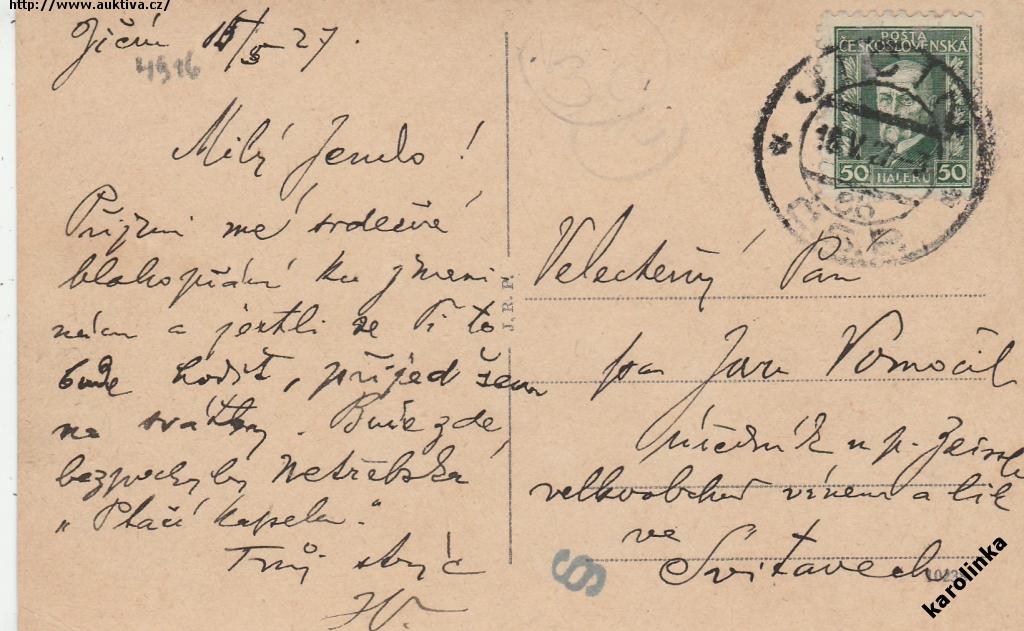 http://www.auktiva.cz/
Jičín 15/5 27.
4916
Milý Jendo!
Přijmi mé srdečné
blahopřání ku jmeni
nám a jestli se Ti to
bude hodit, přijeď sem
na svátky. Bude zde
bezpochyby Netřebská
"Ptačí kapela."
Tvůj strýc
JV.
J. R. P.
POŠTA
ČESKOSLOVENSKÁ
50 HALÉŘŮ 50
JIČÍN
16.V.27
Velectěný Pan
pan Jan Vomočil
úředník u p.
velkoobchod vínem a lih
ve
Svitavech
S
karolinka